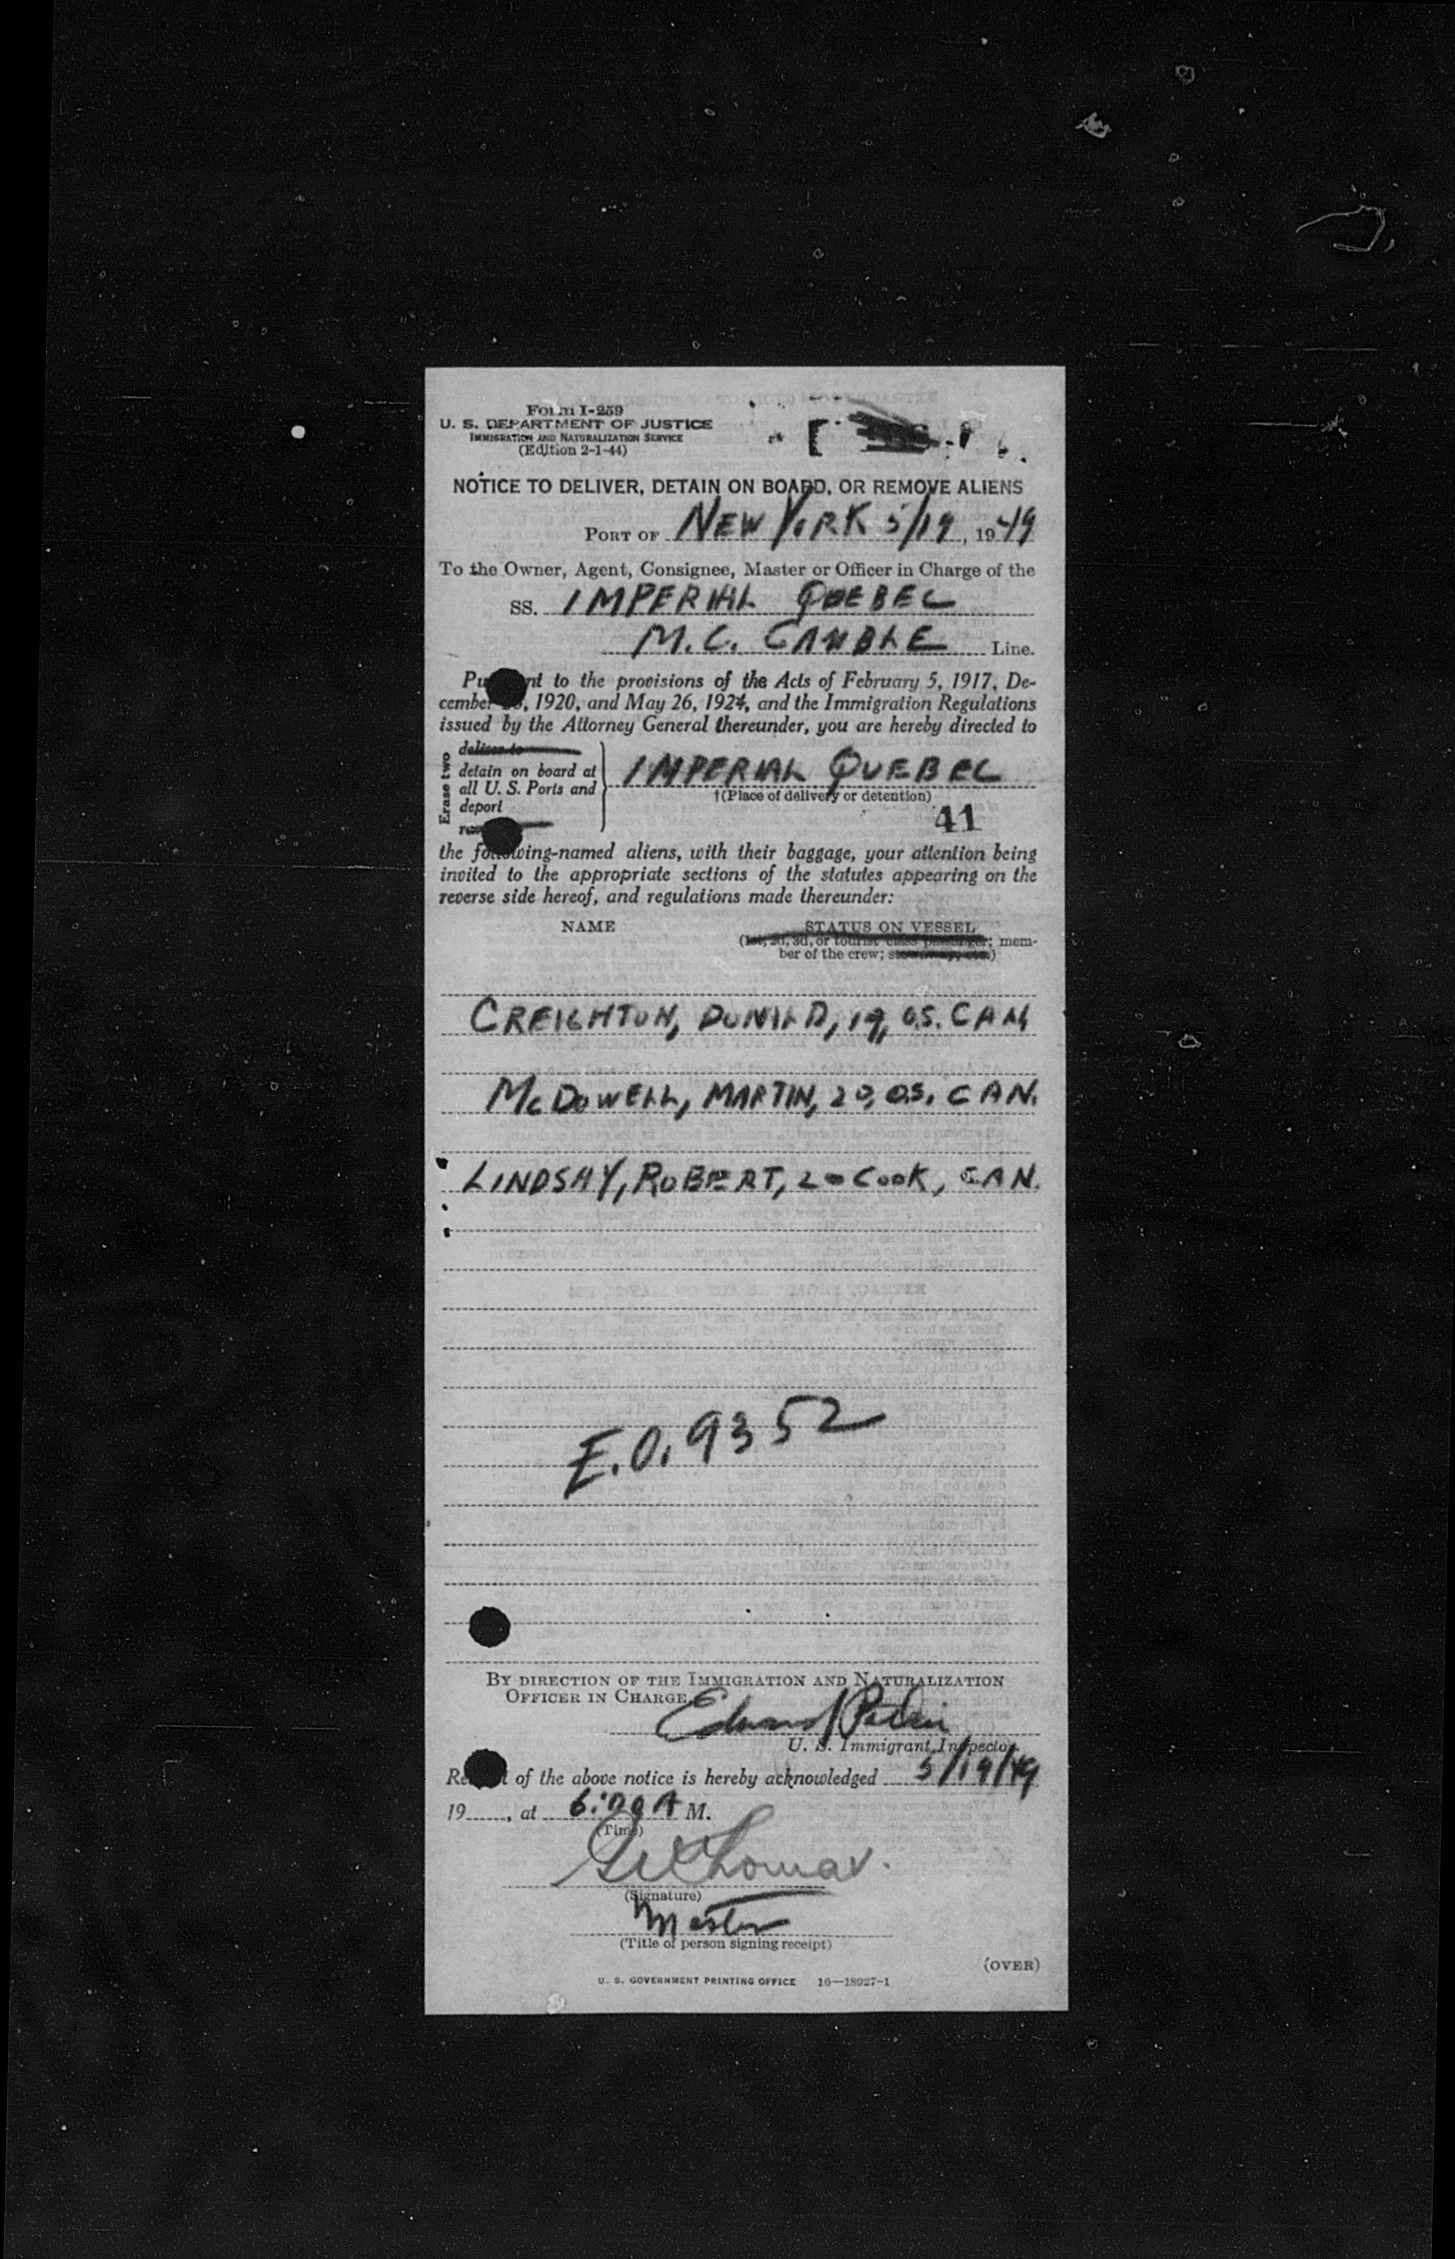 Form I-259
U. S. DEPARTMENT OF JUSTICE
IMMIGRATION AND NATURALIZATION SERVICE
(Edition 2-1-44)
NOTICE TO DELIVER, DETAIN ON BOARD, OR REMOVE ALIENS
PORT OF NEW YORK 5/19, 1949
To the Owner, Agent, Consignee, Master or Officer in Charge of the
SS. IMPERIAL QUEBEC
M.C. Line.
to the provisions of the Acts of February 5, 1917, De-
cember , 1920, and May 26, 1924, and the Immigration Regulations
issued by the Attorney General thereunder, you are hereby directed to
Erase two
deliver to
detain on board at
all U. S. Ports and
deport
IMPERIAL QUEBEC
†(Place of delivery or detention)
41
the following-named aliens, with their baggage, your attention being
invited to the appropriate sections of the statutes appearing on the
reverse side hereof, and regulations made thereunder:
NAME STATUS ON VESSEL
(1st, 2d, 3d, or tourist class passenger; mem-
ber of the crew; stowaway, etc.)
CREIGHTON, DONALD, 19, O.S. CAN
McDOWELL, MARTIN, 20, O.S. CAN.
LINDSAY, ROBERT, 20 COOK, CAN.
E.O. 9352
BY DIRECTION OF THE IMMIGRATION AND NATURALIZATION
OFFICER IN CHARGE
Edward
U. S. Immigrant Inspector.
of the above notice is hereby acknowledged 5/19/49
19......, at 6:00 A M.
(Time)
Thomas.
(Signature)
Master
(Title of person signing receipt)
(OVER)
U. S. GOVERNMENT PRINTING OFFICE 16—18027-1